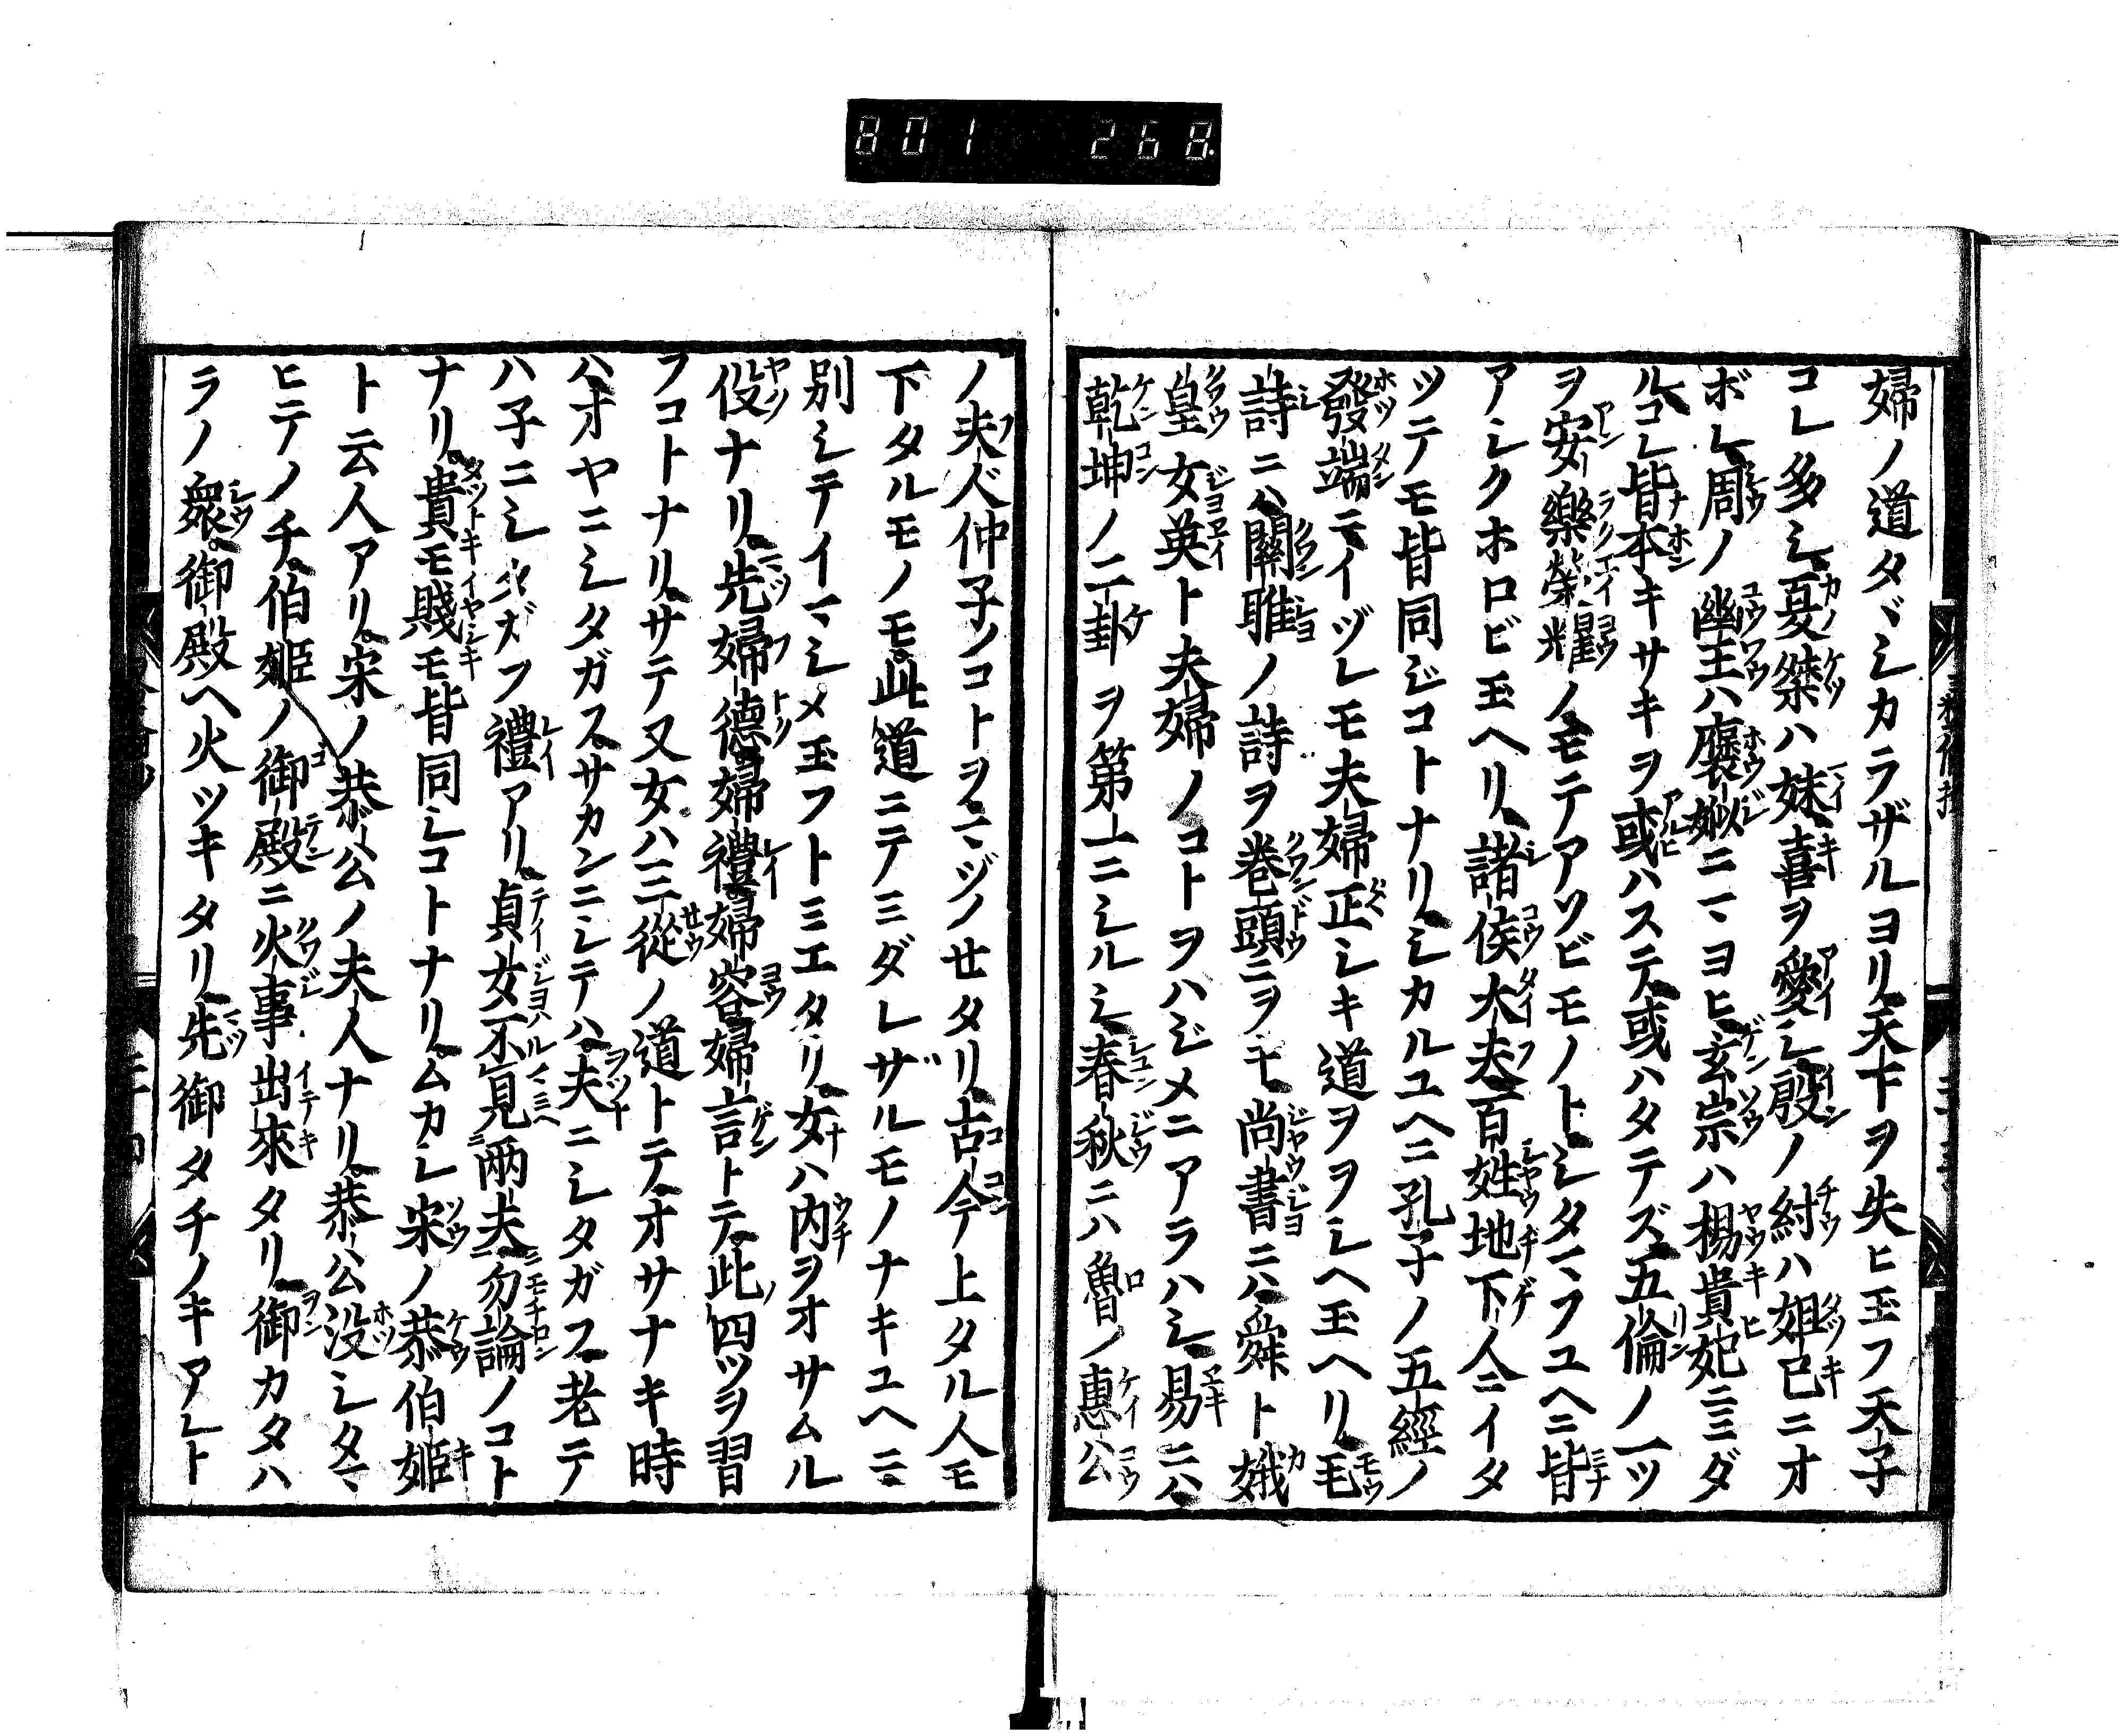 801 268
婦ノ道タヾシカラザルヨリ天下ヲ失ヒ玉フ天子
コレ多シ夏桀ハ妹喜ヲ愛シ殷ノ紂ハ妲己ニオ
ボレ周ノ幽王ハ褒姒ニマヨヒ玄宗ハ楊貴妃ニミダ
ルコレ皆本キサキヲ或ハステ或ハタテズ五倫ノ一ツ
ヲ安樂榮耀ノモテアソビモノトシタマフユヘニ皆
アシクホロビ玉ヘリ諸侯大夫百姓地下人ニイタ
ツテモ皆同ジコトナリシカルユヘニ孔子ノ五經ノ
發端ニイヅレモ夫婦正シキ道ヲヲシヘ玉ヘリ毛
詩ニハ關雎ノ詩ヲ巻頭ニヲモ尚書ニハ舜ト娥
皇女英ト夫婦ノコトヲハジメニアラハシ易ニハ
乾坤ノ二卦ヲ第一ニシルシ春秋ニハ魯ノ惠公
ノ夫人仲子ノコトヲマヅノセタリ古今上タル人モ
下タルモノモ此道ニテミダレザルモノナキユヘニ
別シテイマシメ玉フトミエタリ女ハ内ヲオサムル
役ナリ先婦德婦禮婦容婦言トテ此四ツヲ習
フコトナリサテ又女ハ三從ノ道トテオサナキ時
ハオヤニシタガスサカンニシテハ夫ニシタガフ老テ
ハ子ニシタガフ禮アリ貞女不見兩夫勿論ノコト
ナリ貴モ賤モ皆同シコトナリムカシ宋ノ恭伯姫
ト云人アリ宋ノ恭公ノ夫人ナリ恭公没シタマ
ヒテノチ伯姫ノ御殿ニ火事出來タリ御カタハ
ラノ衆御殿ヘ火ツキタリ先御タチノキアレト